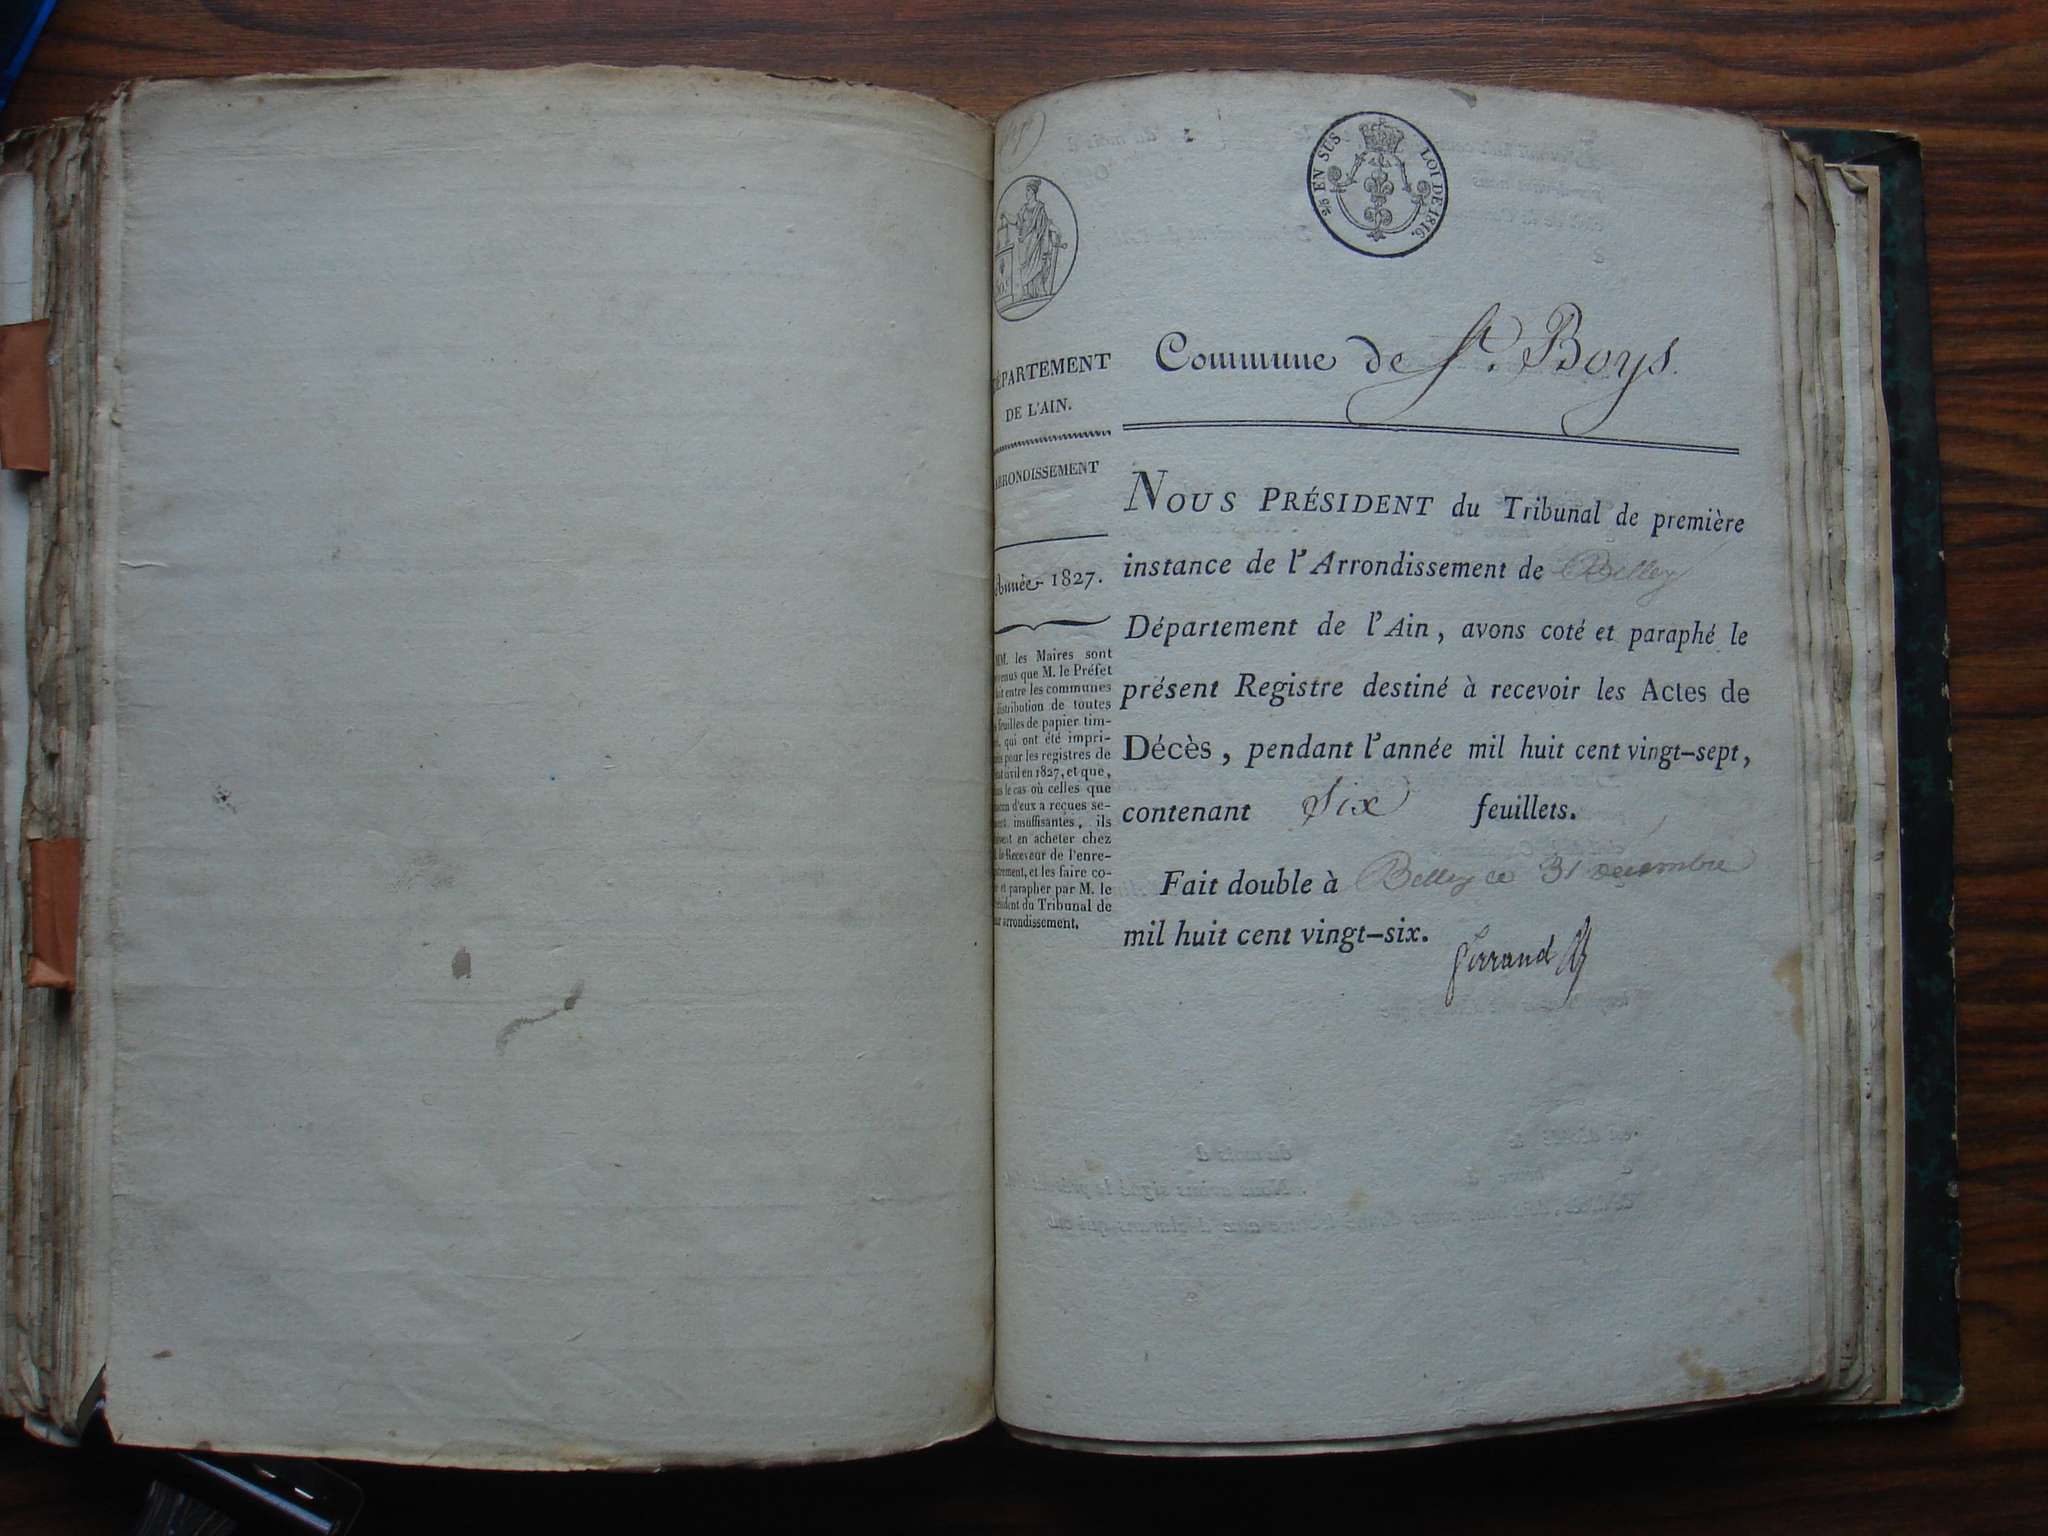 2/5 EN SUS LOI DE 1816.
DÉPARTEMENT
DE L'AIN.
ARRONDISSEMENT
Année 1827.
MM. les Maires sont
que M. le Préfet
entre les communes
distribution de toutes
feuilles de papier tim-
qui ont été impri-
pour les registres de
civil en 1827, et que,
le cas où celles que
d'eux a reçues se-
insuffisantes, ils
en acheter chez
le Receveur de l'enre-
et les faire co-
et parapher par M. le
du Tribunal de
arrondissement.
Commune de St. Boys.
NOUS PRÉSIDENT du Tribunal de première
instance de l'Arrondissement de Belley
Département de l'Ain, avons coté et paraphé le
présent Registre destiné à recevoir les Actes de
Décès, pendant l'année mil huit cent vingt-sept,
contenant Six feuillets.
Fait double à Belley le 31 décembre
mil huit cent vingt-six.